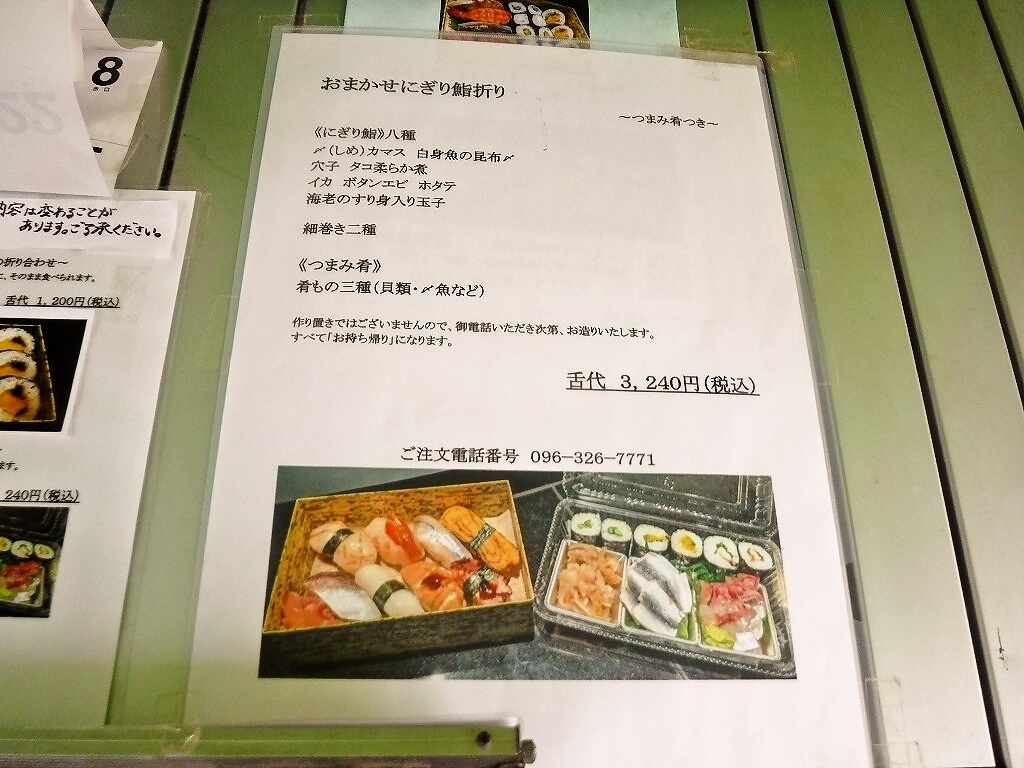 8
赤口
22
内容は変わることが
あります。ご了承ください。
の折り合わせ～
に、そのまま食べられます。
舌代 1,200円(税込)
ます。
240円(税込)
おまかせにぎり鮨折り
～つまみ肴つき～
《にぎり鮨》八種
〆(しめ)カマス 白身魚の昆布〆
穴子 タコ柔らか煮
イカ ボタンエビ ホタテ
海老のすり身入り玉子
細巻き二種
《つまみ肴》
肴もの三種(貝類・〆魚など)
作り置きではございませんので、御電話いただき次第、お造りいたします。
すべて「お持ち帰り」になります。
舌代 3,240円(税込)
ご注文電話番号 096-326-7771